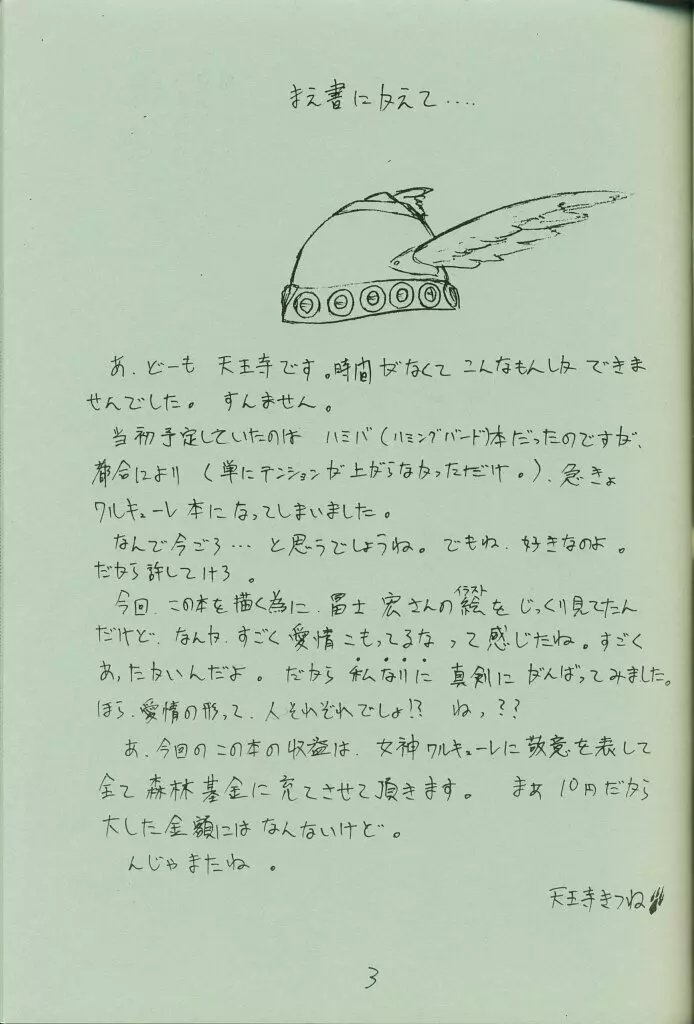 まえ書に代えて‥‥
あ、どーも 天王寺です。時間がなくて こんなもんしか できま
せんでした。 すんません。
当初予定していたのは ハミバ(ハミングバード)本だったのですが、
都合により (単にテンションが上がらなかっただけ。)、急きょ
ワルキューレ本になってしまいました。
なんで今ごろ… と思うでしょうね。でもね、好きなのよ。
だから許してけろ。
今回、この本を描く為に、冨士 宏さんの絵(イラスト)をじっくり見てたん
だけど、なんか、すごく愛情こもってるなって感じたね。すごく
あったかいんだよ。 だから 私なりに 真剣に がんばってみました。
ほら、愛情の形って、人それぞれでしょ!? ねっ??
あ、今回のこの本の収益は、女神ワルキューレに敬意を表して
全て森林基金に充てさせて頂きます。 まぁ 10円だから
大した金額にはなんないけど。
んじゃまたね 。
天王寺きつね
3